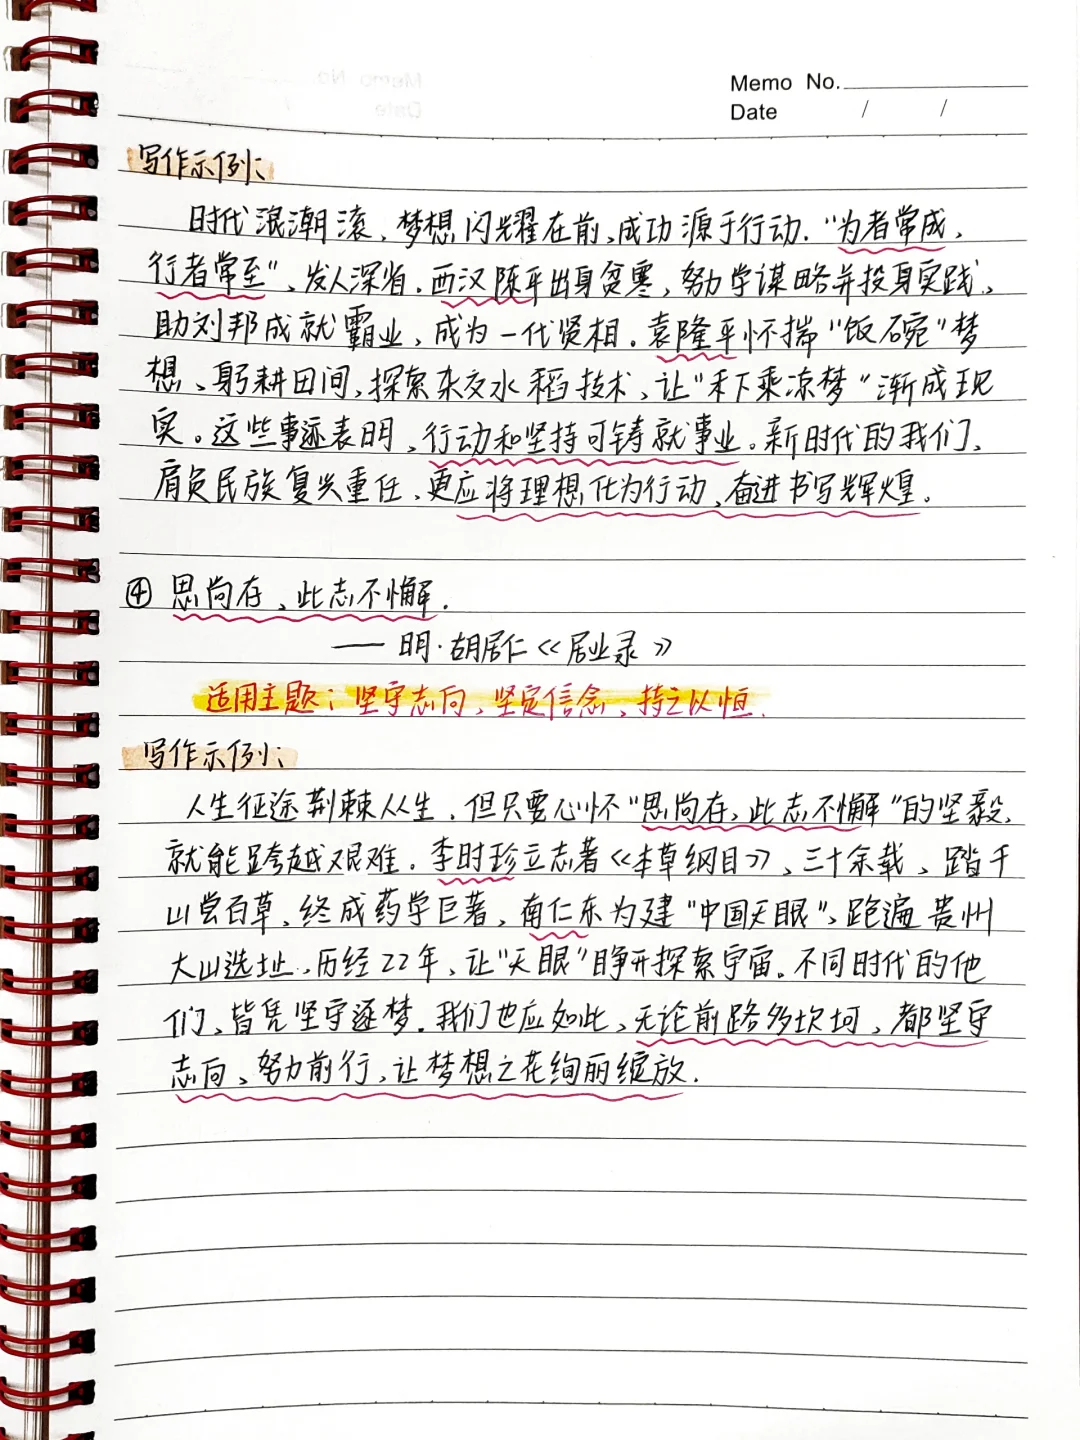 Memo No.
Date / /
写作示例：
时代浪潮滚，梦想闪耀在前，成功源于行动．“为者常成，
行者常至”，发人深省．西汉陈平出身贫寒，努力学谋略并投身实践，
助刘邦成就霸业，成为一代贤相．袁隆平怀揣“饭碗”梦
想，躬耕田间，探索杂交水稻技术，让“禾下乘凉梦”渐成现
实。这些事迹表明，行动和坚持可铸就事业．新时代的我们，
肩负民族复兴重任，更应将理想化为行动，奋进书写辉煌．
④ 思尚存，此志不懈．
—— 明·胡居仁《居业录》
适用主题：坚守志向，坚定信念，持之以恒．
写作示例：
人生征途荆棘从生，但只要心怀“思尚存，此志不懈”的坚毅，
就能跨越艰难．李时珍立志著《本草纲目》，三十余载，踏千
山尝百草，终成药学巨著，南仁东为建“中国天眼”，跑遍贵州
大山选址，历经22年，让“天眼”睁开探索宇宙．不同时代的他
们，皆凭坚守逐梦．我们也应如此，无论前路多坎坷，都坚守
志向，努力前行，让梦想之花绚丽绽放．